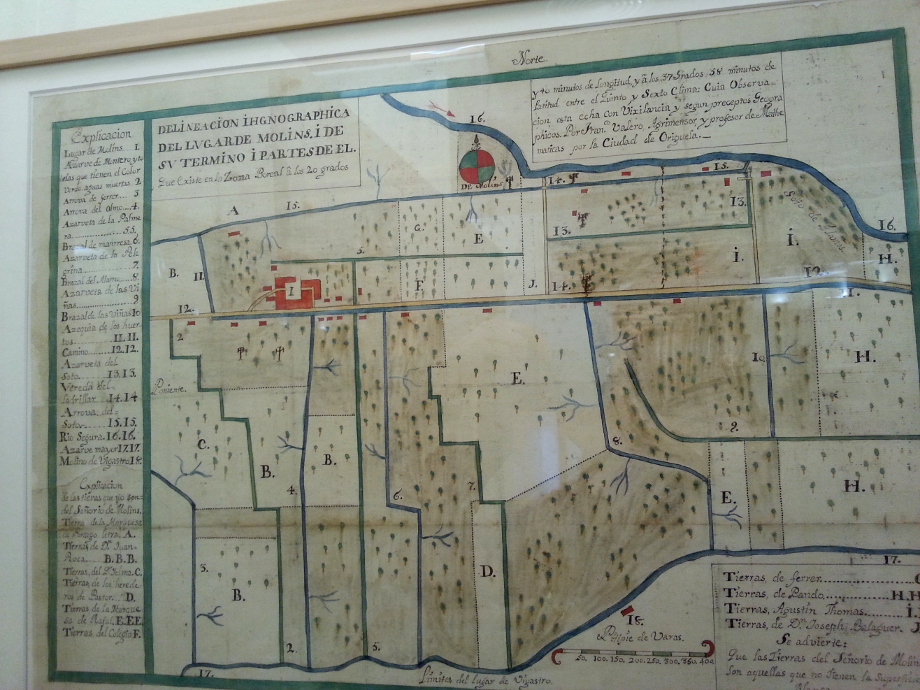 Norte.
DELINEACION IHGNOGRAPHICA
DEL LVGAR DE MOLINS, I DE
SV TERMINO I PARTES DE EL.
Que Existe en la Zona Boreal à los 20 grados
y 40 minutos de Longitud, y à los 37 Grados 58 minutos de
latitud entre el Quinto y Sexto Clima: Cuia Observa
cion esta echa con Vixilancia y segun preceptos Geogra
phicos. Por Fran.co Valero, Agrimensor y profesor de Mathe
maticas por la Ciudad de Origuela.
Explicacion
Lugar de Molins. 1.
Azarve de Montero y
las que tienen el Color
Verde aguas muertas. 2.
Arrova de ferrer. 3.
Arrova del Olmo. 4.
Azarveta de la Palme
ra. 5.5.
Brazal de 6.
Azarveta de la Pele
grina. 7.
Brazal del Alamo. 8.
Azarveta de las Vi
ñas. 9
Brazal de las Viñas 10
Azequia de los huer
tos. 11.11.
Camino. 12.12.
Azarveta del
Soto. 13.13.
Vereda del
14.14
Arrova del
Soto. 15.15.
Rio Segura. 16.16.
Azarve mayor 17.17.
Molino de Vigastro 18.
Explicacion
de las tierras que
del Señorio de Molins.
Tierra de la
A.
Tierras de D.n Juan
Roca. B.B.B.
Tierras del D.r C.
Tierras de los herede
ros de Pastor. D.
Tierras de la Marque
sa de Rafal. E.E.E.
Tierras del Colegio F.
Poniente.
Soto de
De Molins.
16.
A
15.
15.
14.
13.
13.
16.
B.
11.
12.
I
5.
G.
E
F
J.
14.
I.
I.
12.
H.
2.
C.
B.
B.
4.
6.
7.
E.
8.
10.
9.
H.
H.
E.
3.
B.
2.
5.
D.
17.
17.
18.
Pitipie de Varas.
50. 100. 150. 200. 250. 300. 350. 400
Limites del lugar de Vigastro.
Tierras, de ferrer
Tierras, de Pando. H.H
Tierras, Agustin Thomas. I.
Tierras, de D.n Joseph Balaguer. J
Se advierte:
Que las Tierras del Señorio de Molins
son aquellas que no tienen la superficie